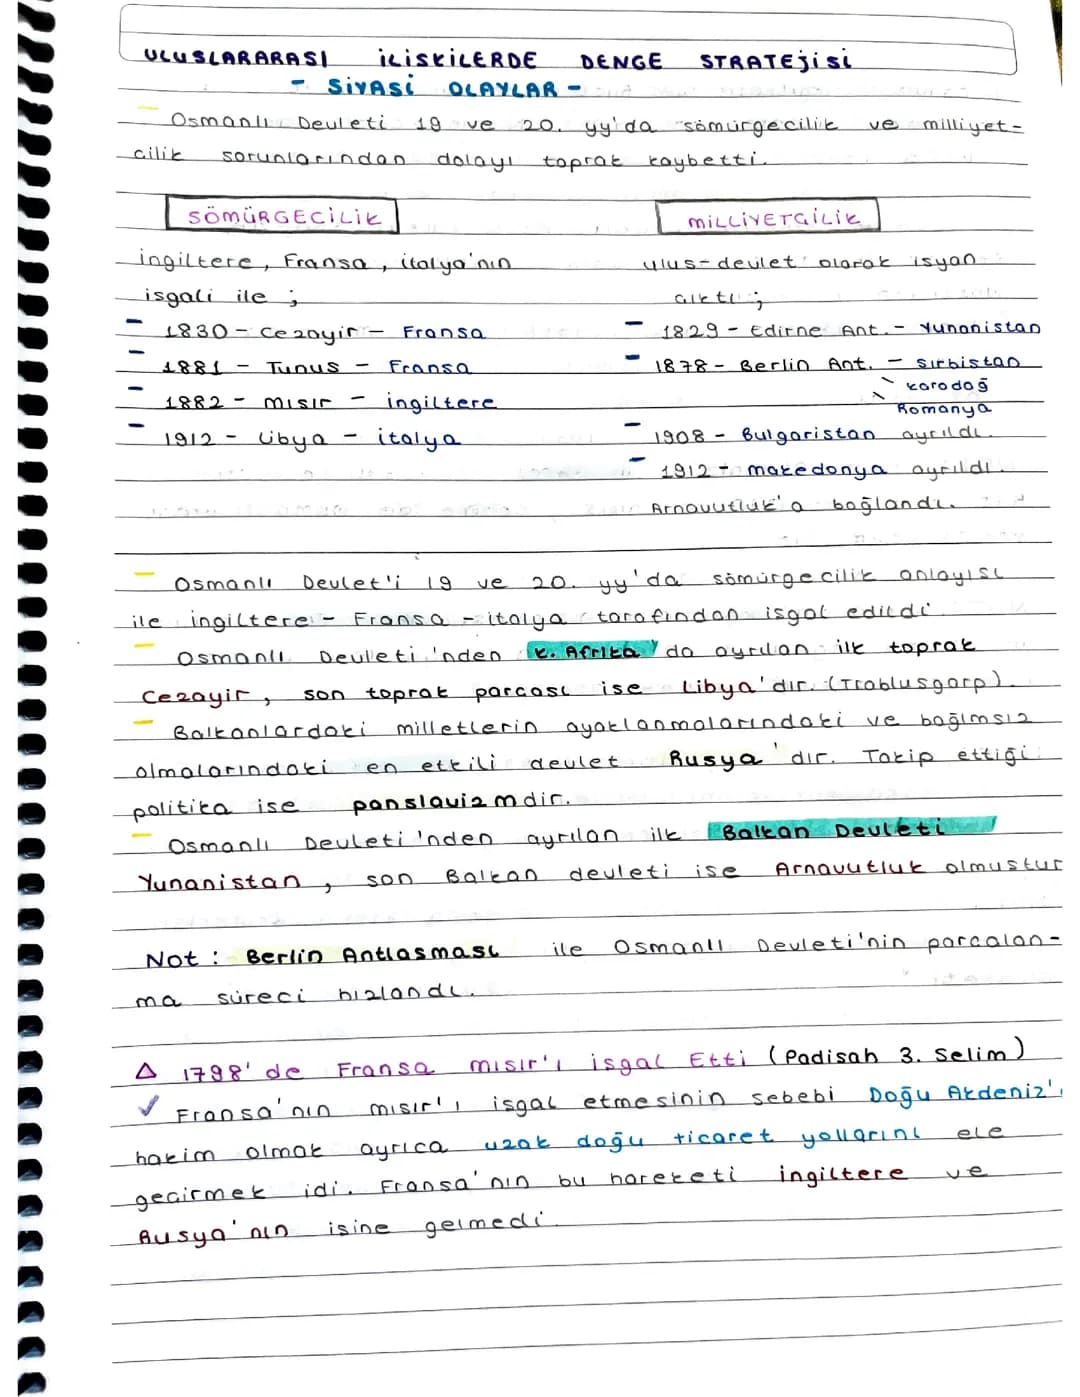 ULUSLARARASI İLİSKİLERDE DENGE STRATEJİSİ
- SİYASİ OLAYLAR -
Osmanlı Devleti 19 ve 20. yy'da sömürgecilik ve milliyet-
cilik sorunlarından dolayı toprak kaybetti.
SÖMÜRGECİLİK
MİLLİYETCİLİK
ingiltere, Fransa, italya'nın
isgali ile ;
ulus-devlet olarak isyan
cıktı ;
- 1830 - Cezayir - Fransa
- 1881 - Tunus - Fransa
- 1882 - mısır - ingiltere
- 1912 - Libya - italya
- 1829 - Edirne Ant. - Yunanistan
- 1878 - Berlin Ant. - Sırbistan
karadağ
Romanya
- 1908 - Bulgaristan ayrıldı.
- 1912 - makedonya ayrıldı.
Arnavutluk'a bağlandı.
- Osmanlı Devlet'i 19 ve 20. yy'da sömürgecilik anlayısı
ile ingiltere - Fransa - italya tarafından isgal edildi.
- Osmanlı Devleti'nden K. Afrika'da ayrılan ilk toprak
Cezayir, son toprak parcası ise Libya'dır. (Trablusgarp).
- Balkanlardaki milletlerin ayaklanmalarındaki ve bağımsız
olmalarındaki en etkili devlet Rusya'dır. Takip ettiği
politika ise panslavizmdir.
- Osmanlı Devleti'nden ayrılan ilk Balkan Devleti
Yunanistan, son Balkan devleti ise Arnavutluk olmustur
Not : Berlin Antlasması ile Osmanlı Devleti'nin parcalan-
ma süreci hızlandı.
△ 1798'de Fransa mısır'ı isgal Etti (Padisah 3. Selim)
✓ Fransa'nın mısır'ı isgal etmesinin sebebi Doğu Akdeniz'
hakim olmak ayrıca uzak doğu ticaret yollarını ele
gecirmek idi. Fransa'nın bu hareketi ingiltere ve
Rusya'nın isine gelmedi.